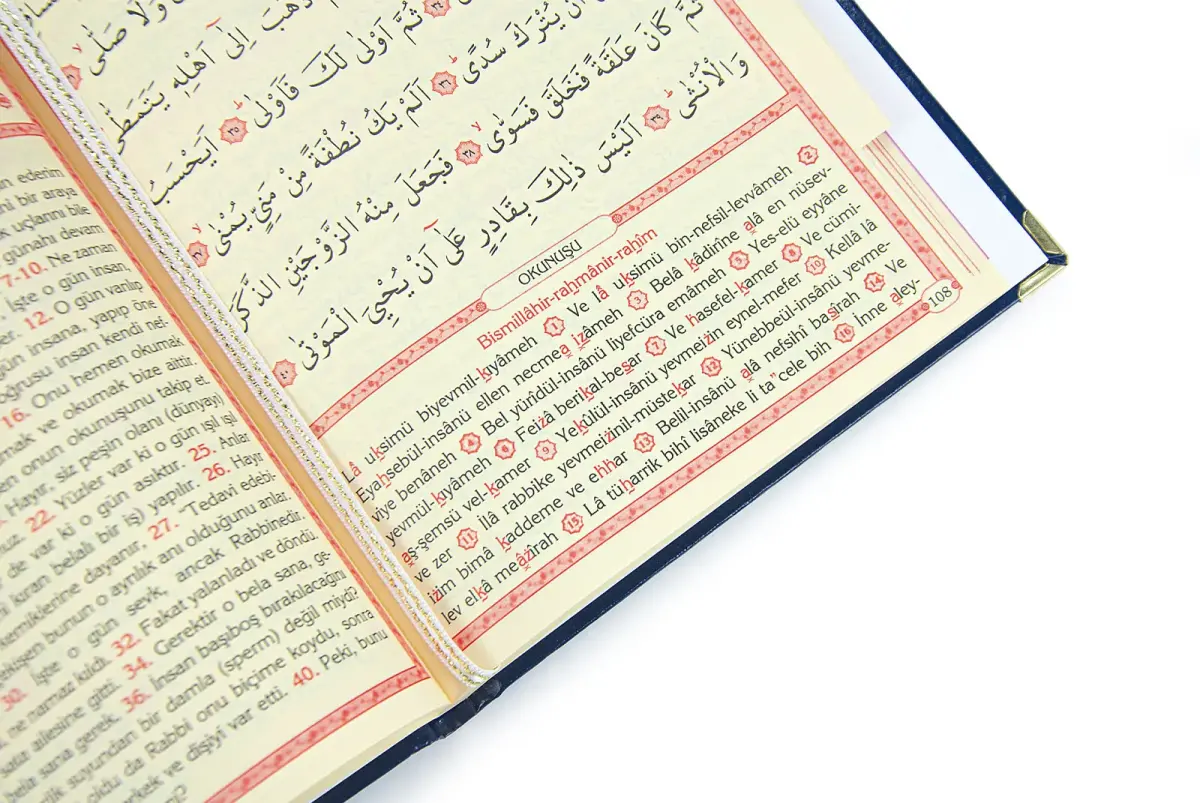 وَلَا صَلّٰى
ذَهَبَ اِلٰٓى اَهْلِه۪ يَتَمَطّٰى
٣٤ ثُمَّ اَوْلٰى لَكَ فَاَوْلٰى ٣٥ اَيَحْسَبُ
اَنْ يُتْرَكَ سُدًى ٣٦ اَلَمْ يَكُ نُطْفَةً مِنْ مَنِيٍّ يُمْنٰى ٣٧
ثُمَّ كَانَ عَلَقَةً فَخَلَقَ فَسَوّٰى ٣٨ فَجَعَلَ مِنْهُ الزَّوْجَيْنِ الذَّكَرَ
وَالْاُنْثٰى ٣٩ اَلَيْسَ ذٰلِكَ بِقَادِرٍ عَلٰٓى اَنْ يُحْيِيَ الْمَوْتٰى ٤٠
OKUNUŞU
Bismillâhir-rahmânir-rahîm
Lâ uksimü biyevmil-kıyâmeh 1 Ve lâ uksimü bin-nefsil-levvâmeh 2
Eyahsebül-insânü ellen necmea izâmeh 3 Belâ kâdirîne alâ en nüsev-
viye benâneh 4 Bel yürîdül-insânü liyefcüra emâmeh 5 Yes-elü eyyâne
yevmül-kıyâmeh 6 Feizâ berikal-besar 7 Ve hasefel-kamer 8 Ve cümi-
aş-şemsü vel-kamer 9 Yekûlül-insânü yevmeizin eynel-mefer 10 Kellâ lâ
ve zer 11 İlâ rabbike yevmeizinil-müstekar 12 Yünebbeül-insânü yevme-
izim bimâ kaddeme ve ehhar 13 Belil-insânü alâ nefsihî basîrah 14 Ve
lev elkâ meâzîrah 15 Lâ tüharrik bihî lisâneke li ta"cele bih 16 İnne aley-
108
ederim
bir araya
uçlarını bile
günahı devam
7-10. Ne zaman
İşte o gün insan,
12. O gün varılıp
gün insana, yapıp öne
doğrusu insan kendi nef-
16. Onu hemen okumak
mak ve okumak bize aittir.
onun okunuşunu takip et.
Hayır, siz peşin olanı (dünyayı)
22. Yüzler var ki o gün ışıl ışıl
de var ki o gün asıktır. 25. Anlar
kıran belalı bir iş) yapılır. 26. Hayır
kemiklerine dayanır, 27. "Tedavi edebi-
bunun o ayrılık anı olduğunu anlar.
İşte o gün sevk, ancak Rabbinedir.
30. ne namaz kıldı. 32. Fakat yalanladı ve döndü.
ailesine gitti. 34. Gerektir o bela sana, ge-
bela sana gerek. 36. İnsan başıboş bırakılacağını
suyundan bir damla (sperm) değil miydi?
oldu da Rabbi onu biçime koydu, sonra
erkek ve dişiyi var etti. 40. Peki, bunu